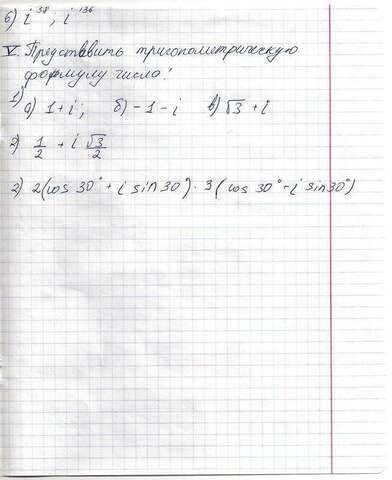 б) i³⁸, i¹³⁶
V. Представить тригонометрическую
формулу числа!
1) а) 1+i; б) -1-i в) √3 + i
2) 1/2 + i √3/2
2) 2(cos 30° + i sin 30°) · 3 (cos 30° - i sin 30°)